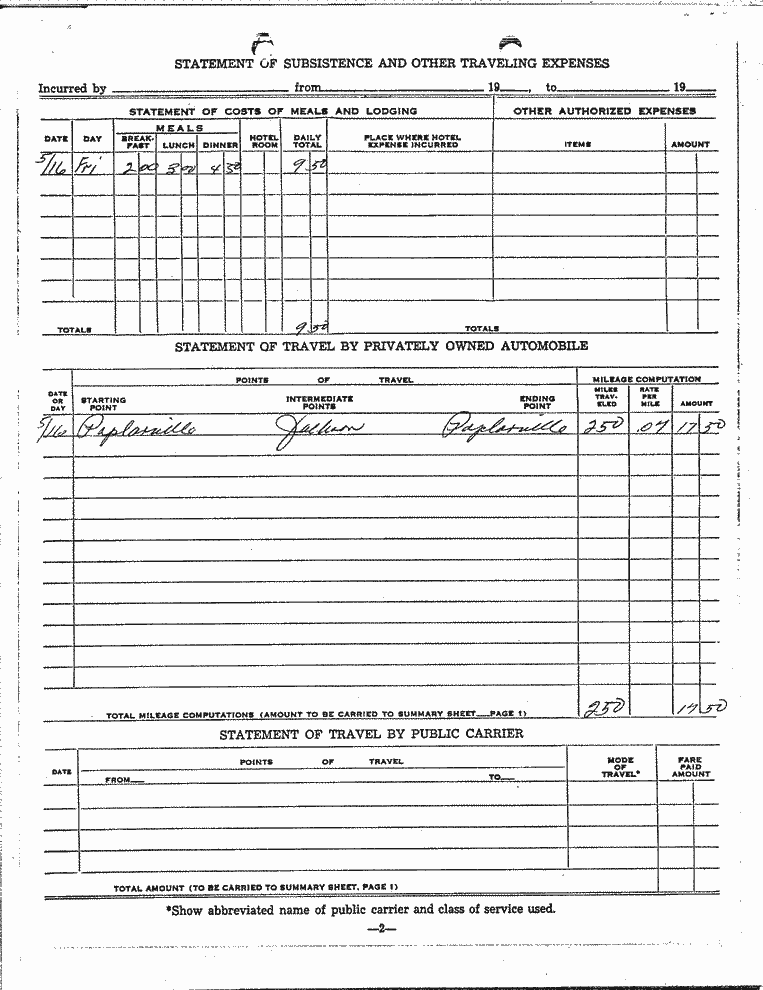 STATEMENT OF SUBSISTENCE AND OTHER TRAVELING EXPENSES
Incurred by from 19 , to 19
STATEMENT OF COSTS OF MEALS AND LODGING OTHER AUTHORIZED EXPENSES
DATE DAY MEALS BREAK-FAST LUNCH DINNER HOTEL ROOM DAILY TOTAL PLACE WHERE HOTEL EXPENSE INCURRED ITEMS AMOUNT
5/16 Fri 2 00 3 00 4 50 9 50
TOTALS 9 50 TOTALS
STATEMENT OF TRAVEL BY PRIVATELY OWNED AUTOMOBILE
POINTS OF TRAVEL MILEAGE COMPUTATION
DATE OR DAY STARTING POINT INTERMEDIATE POINTS ENDING POINT MILES TRAV-ELED RATE PER MILE AMOUNT
5/16 Poplarville Jackson Poplarville 250 .07 17 50
TOTAL MILEAGE COMPUTATIONS (AMOUNT TO BE CARRIED TO SUMMARY SHEET—PAGE 1) 250 17 50
STATEMENT OF TRAVEL BY PUBLIC CARRIER
DATE POINTS OF TRAVEL MODE OF TRAVEL* FARE PAID AMOUNT
FROM— TO—
TOTAL AMOUNT (TO BE CARRIED TO SUMMARY SHEET, PAGE 1)
*Show abbreviated name of public carrier and class of service used.
—2—